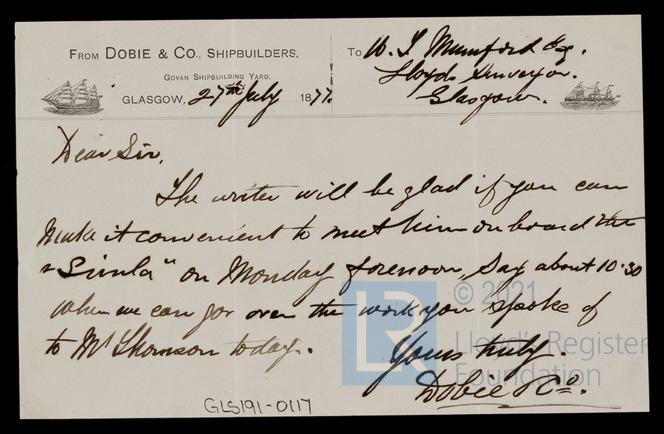 FROM DOBIE & CO., SHIPBUILDERS,
GOVAN SHIPBUILDING YARD,
GLASGOW, 27th July 1877.
To W. T. Mumford Esq.
Lloyds Surveyor.
Glasgow.
Dear Sir,
The writer will be glad if you can
make it convenient to meet him on board the
"Simla" on Monday forenoon, Say about 10.30
when we can go over the work you spoke of
to Mr Thomson today.
Yours truly.
Dobie & Co.
GLS191-0117
© 2021
Lloyd's Register
Foundation
LR